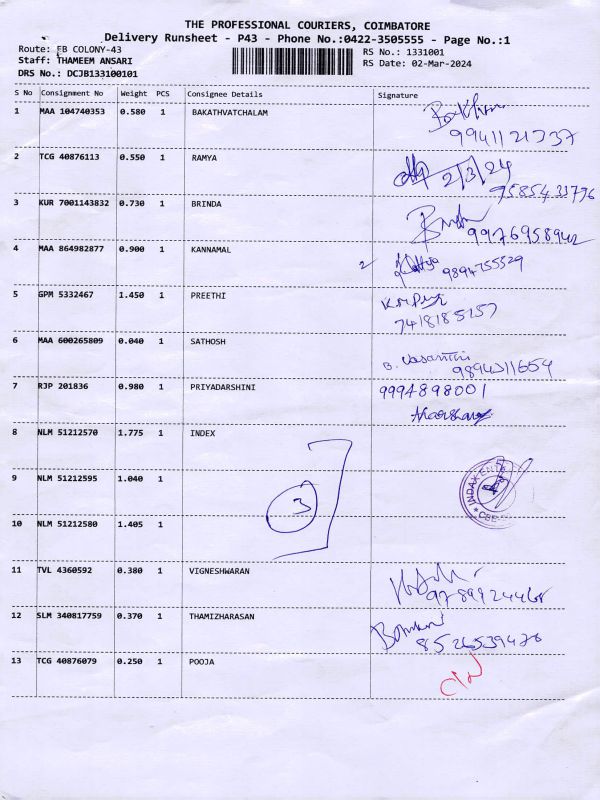 THE PROFESSIONAL COURIERS, COIMBATORE
Delivery Runsheet - P43 - Phone No.:0422-3505555 - Page No.:1
Route: EB COLONY-43 RS No.: 1331001
Staff: THAMEEM ANSARI RS Date: 02-Mar-2024
DRS No.: DCJB133100101
S No Consignment No Weight PCS Consignee Details Signature
1 MAA 104740353 0.580 1 BAKATHVATCHALAM
2 TCG 40876113 0.550 1 RAMYA 2/3/24
7585433796
3 KUR 7001143832 0.730 1 BRINDA 9976958942
4 MAA 864982877 0.900 1 KANNAMAL 9894755529
5 GPM 5332467 1.450 1 PREETHI
7418185257
6 MAA 600265809 0.040 1 SATHOSH B. Vasanthi
9894311654
7 RJP 201836 0.980 1 PRIYADARSHINI 9994898001
8 NLM 51212570 1.775 1 INDEX
9 NLM 51212595 1.040 1
3
10 NLM 51212580 1.405 1
11 TVL 4360592 0.380 1 VIGNESHWARAN
9789924468
12 SLM 340817759 0.370 1 THAMIZHARASAN
8526539476
13 TCG 40876079 0.250 1 POOJA